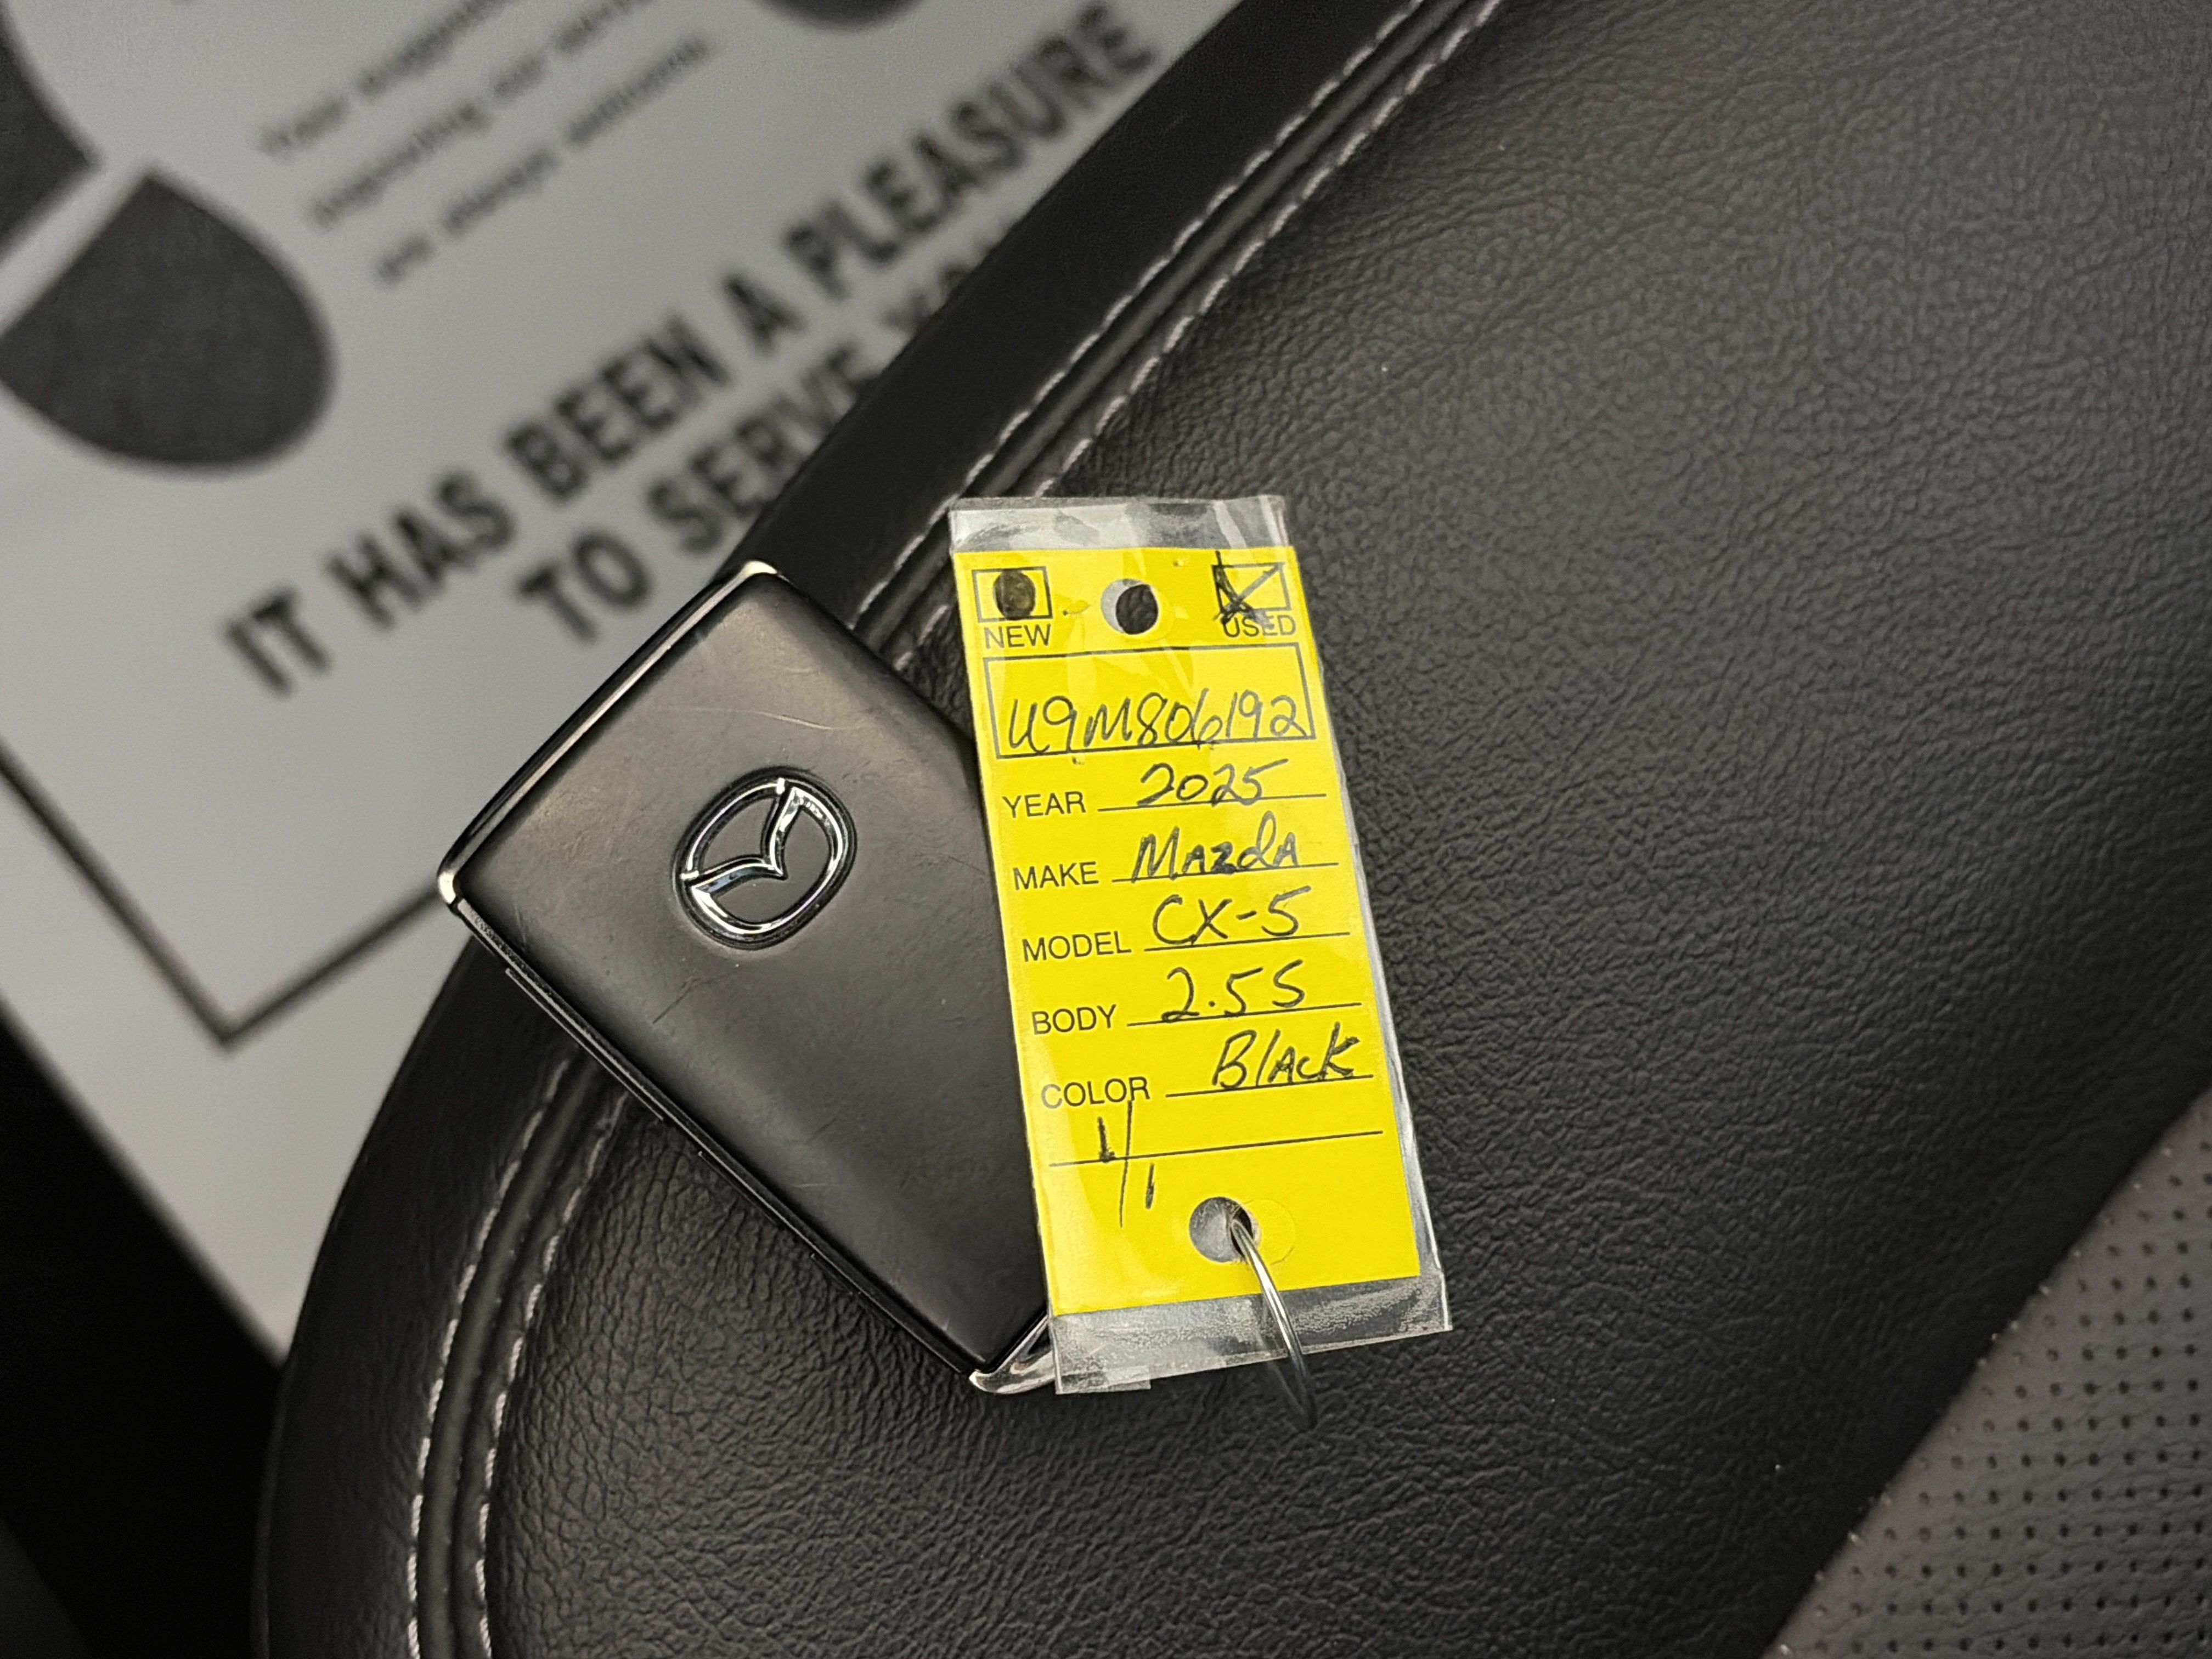 IT HAS BEEN A PLEASURE
TO SERVE
NEW USED
U9M806192
YEAR 2025
MAKE MAzdA
MODEL CX-5
BODY 2.5S
COLOR BlAcK
1/1